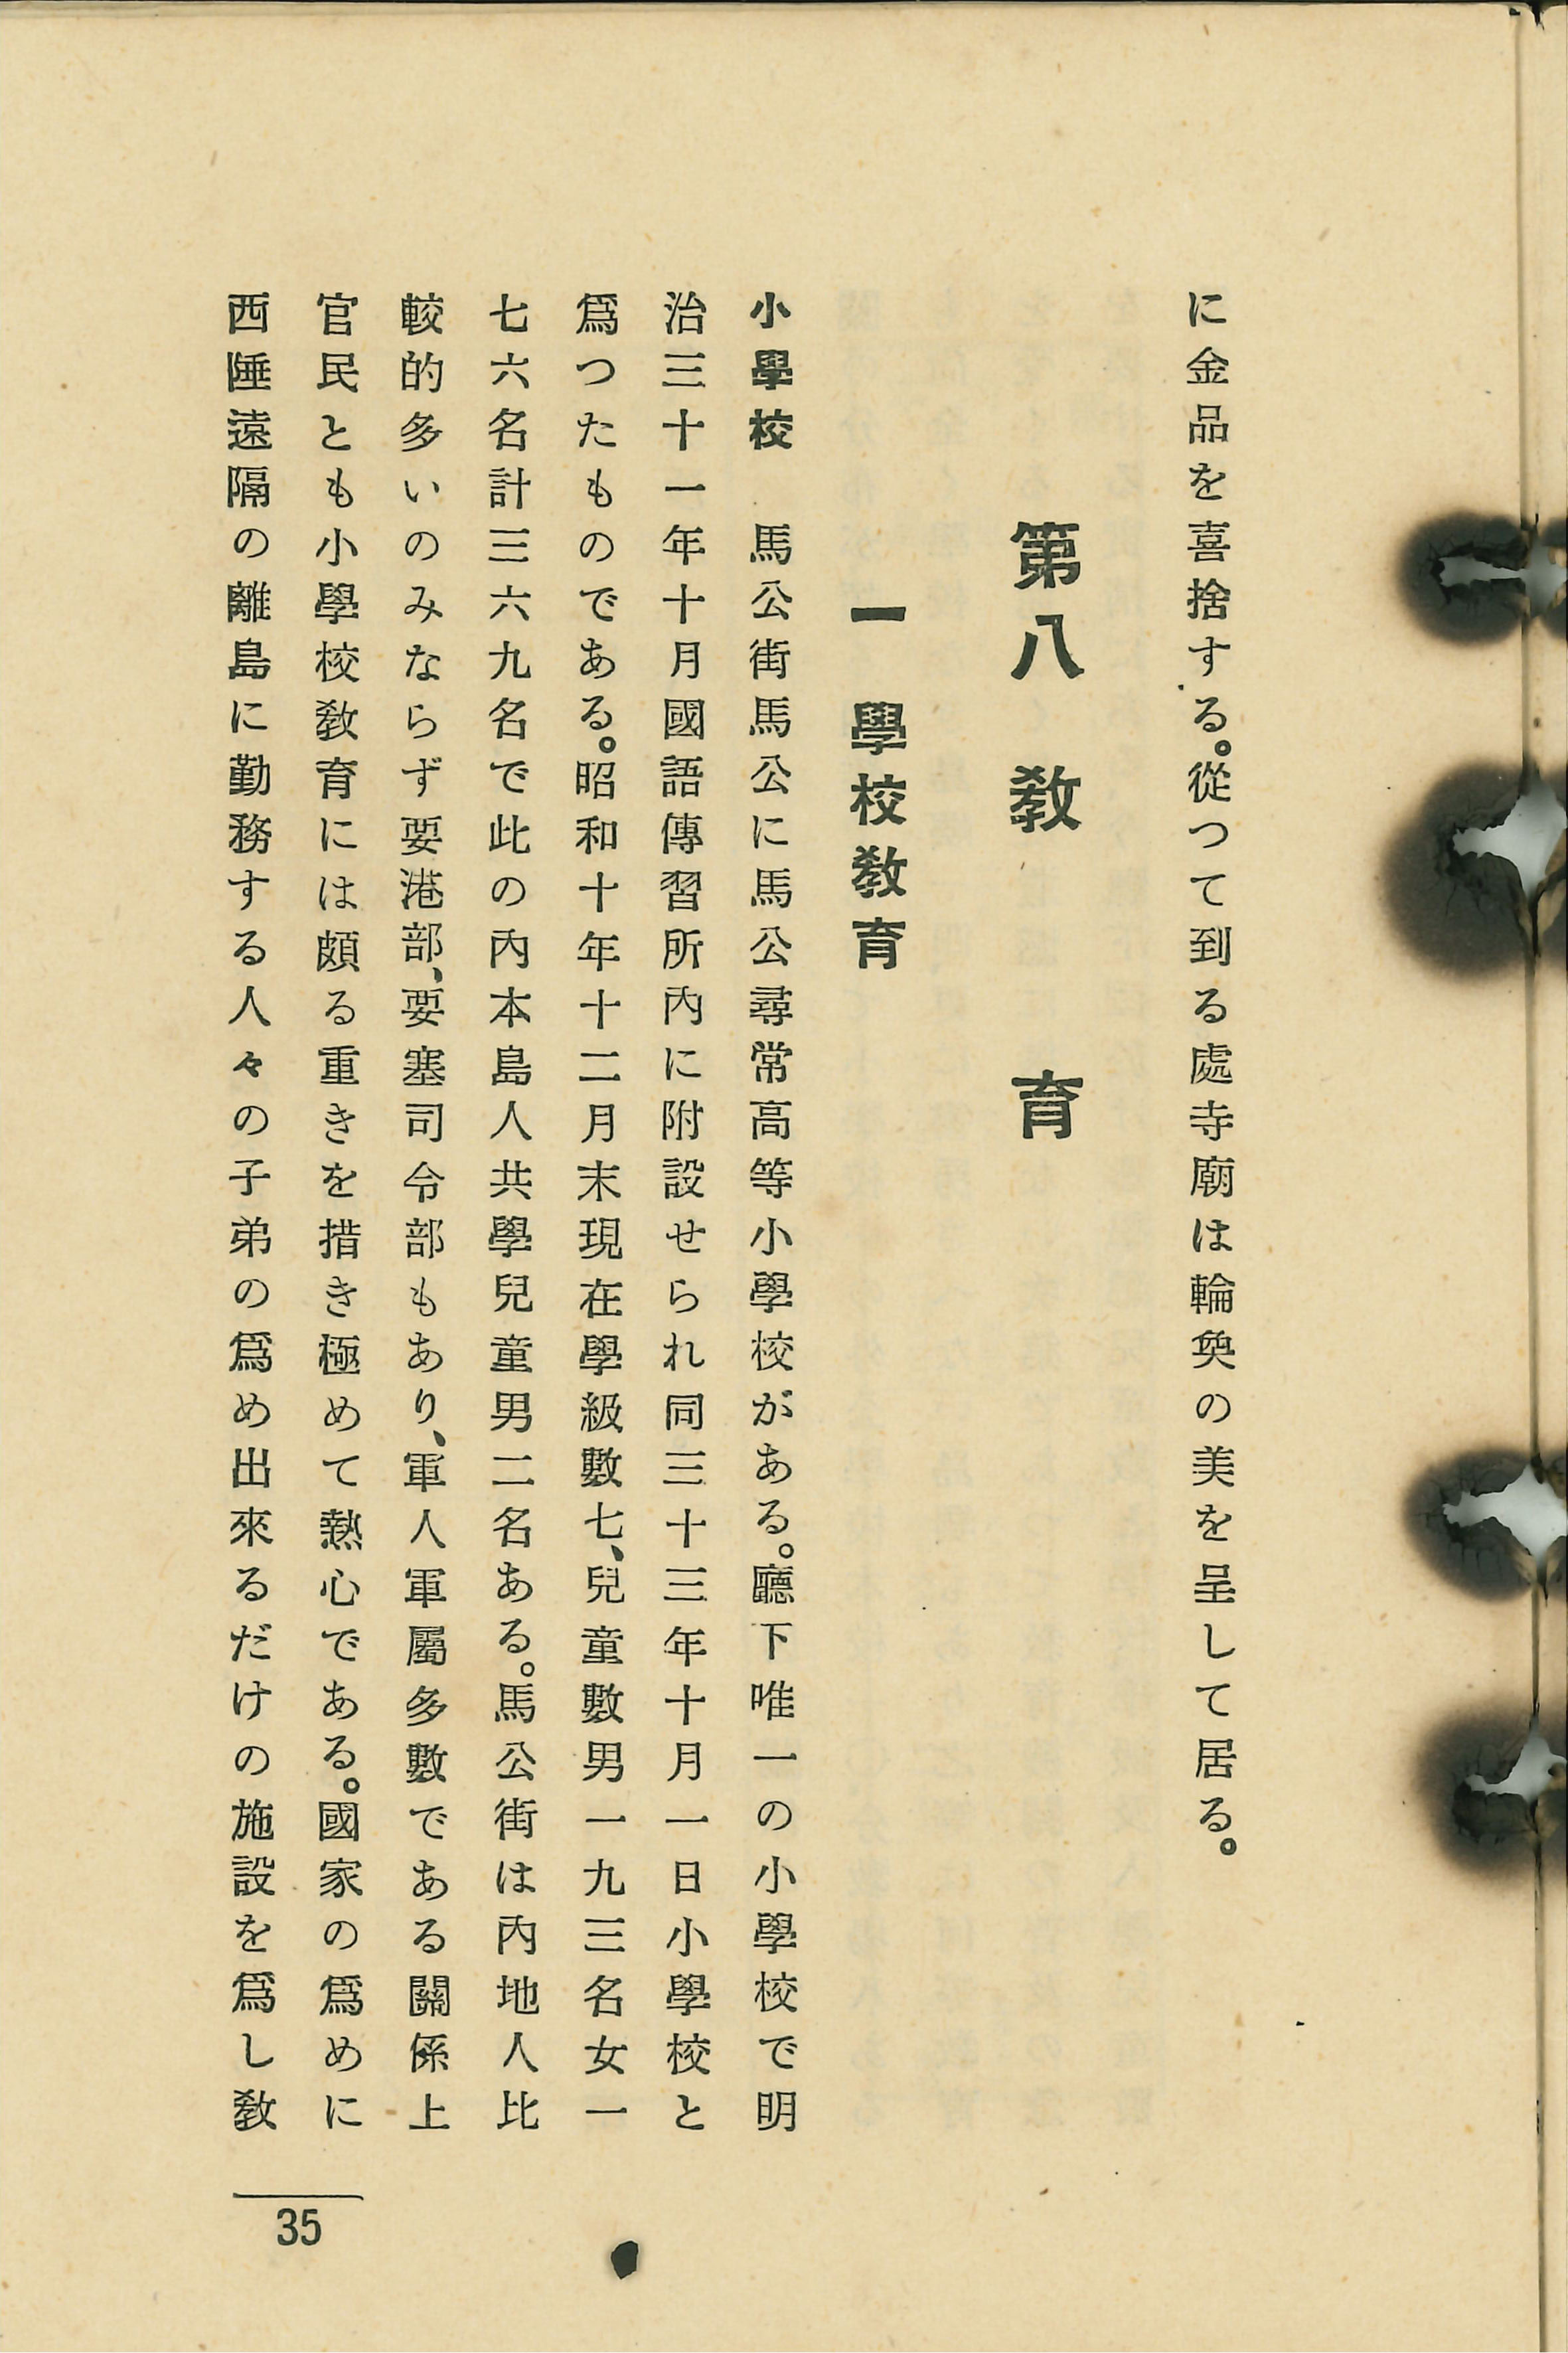 に金品を喜捨する。從つて到る處寺廟は輪奐の美を呈して居る。
第八　教　育
一　學校教育
小學校　馬公街馬公に馬公尋常高等小學校がある。廳下唯一の小學校で明
治三十一年十月國語傳習所內に附設せられ同三十三年十月一日小學校と
爲つたものである。昭和十年十二月末現在學級數七、兒童數男一九三名女一
七六名計三六九名で此の內本島人共學兒童男二名ある。馬公街は內地人比
較的多いのみならず要港部、要塞司令部もあり、軍人軍屬多數である關係上
官民とも小學校教育には頗る重きを措き極めて熱心である。國家の爲めに
西陲遠隔の離島に勤務する人々の子弟の爲め出來るだけの施設を爲し教
35